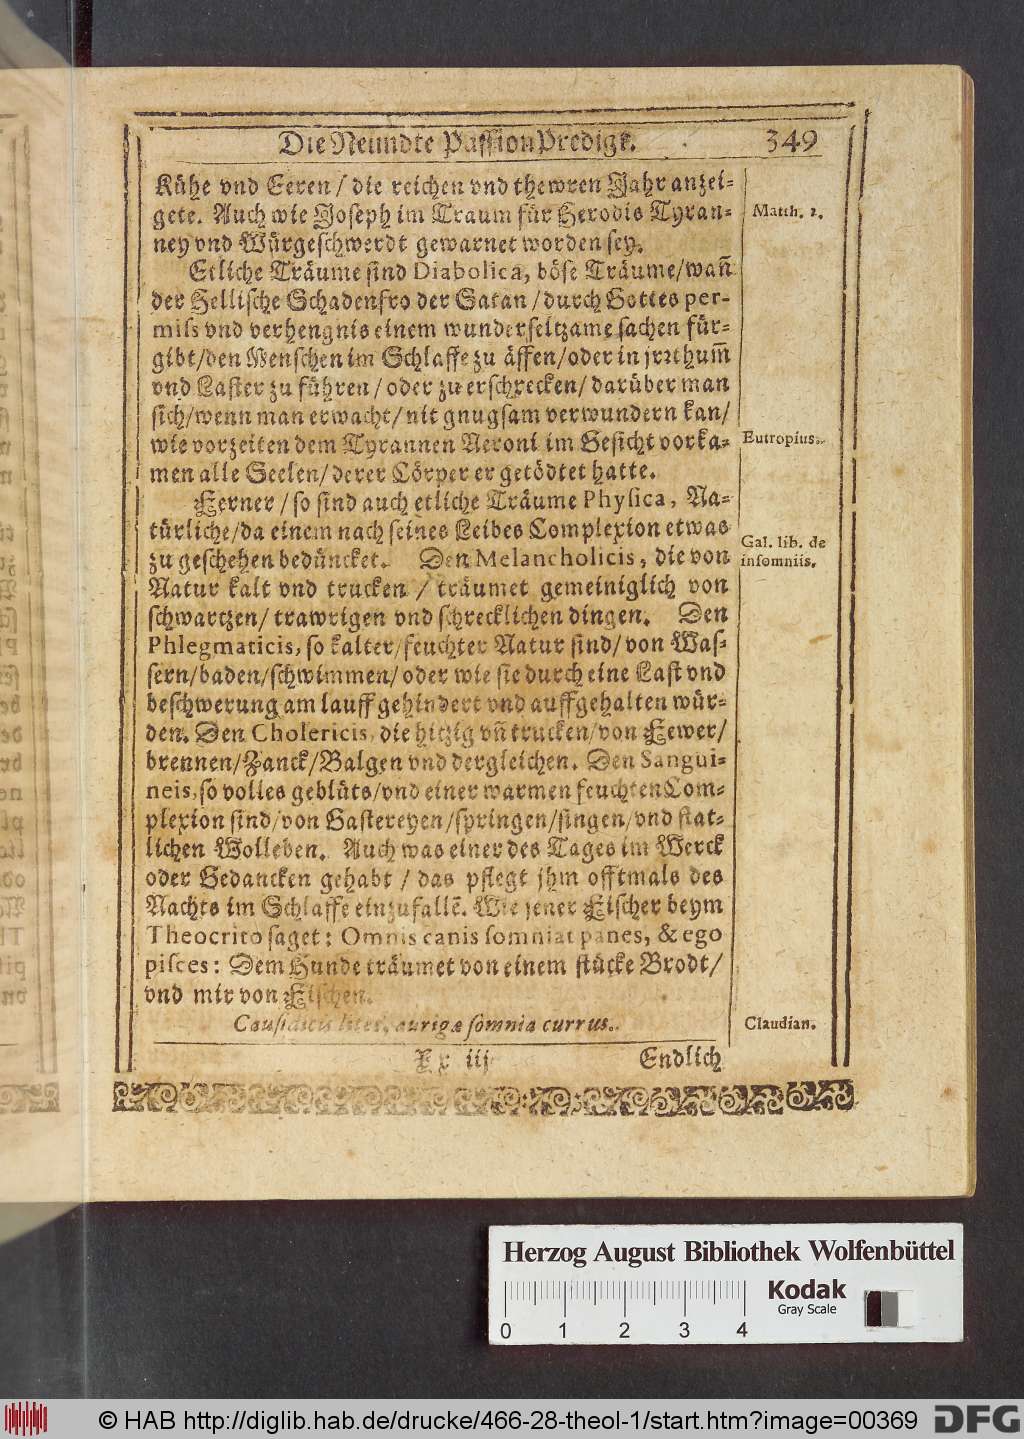 Die Neundte PassionPredigt. 349
Kühe vnd Eeren / die reichen vnd thewren Jahr anzei-
gete. Auch wie Joseph im Traum für Herodis Tyran-
ney vnd Würgeschwerdt gewarnet worden sey.
Matth. 2.
Etliche Träume sind Diabolica, böse Träume/wañ
der Hellische Schadenfro der Satan / durch Gottes per-
miss vnd verhengnis einem wunderseltzame sachen für-
gibt/den Menschen im Schlaffe zu äffen/oder in jrrthum̃
vnd Laster zu führen / oder zu erschrecken / darüber man
sich/wenn man erwacht/ nit gnugsam verwundern kan/
wie vorzeiten dem Tyrannen Neroni im Gesicht vorka-
men alle Seelen/ derer Cörper er getödtet hatte.
Eutropius.
Ferner / so sind auch etliche Träume Physica, Na-
türliche/da einem nach seines Leibes Complexion etwas
zu geschehen bedüncket. Den Melancholicis, die von
Natur kalt vnd trucken / träumet gemeiniglich von
schwartzen/ trawrigen vnd schrecklichen dingen. Den
Phlegmaticis, so kalter/feuchter Natur sind/ von Was-
sern/baden/schwimmen/ oder wie sie durch eine Last vnd
beschwerung am lauff gehindert vnd auffgehalten wür-
den. Den Cholericis, die hitzig vñ trucken/von Fewer/
brennen/Zanck/Balgen vnd dergleichen. Den Sangui-
neis, so volles geblüts/vnd einer warmen feuchten Com-
plexion sind/von Gastereyen/springen/singen/vnd stat-
lichen Wolleben. Auch was einer des Tages im Werck
oder Gedancken gehabt / das pflegt jhm offtmals des
Nachts im Schlaffe einzufallẽ. Wie jener Fischer beym
Theocrito saget: Omnis canis somniat panes, & ego
pisces: Dem Hunde träumet von einem stücke Brodt/
vnd mir von Fischen.
Gal. lib. de
insomniis.
Causidicus lites, aurigæ somnia currus.
Claudian.
Xx iij Endlich
Herzog August Bibliothek Wolfenbüttel
Kodak
Gray Scale
0 1 2 3 4
© HAB http://diglib.hab.de/drucke/466-28-theol-1/start.htm?image=00369
DFG